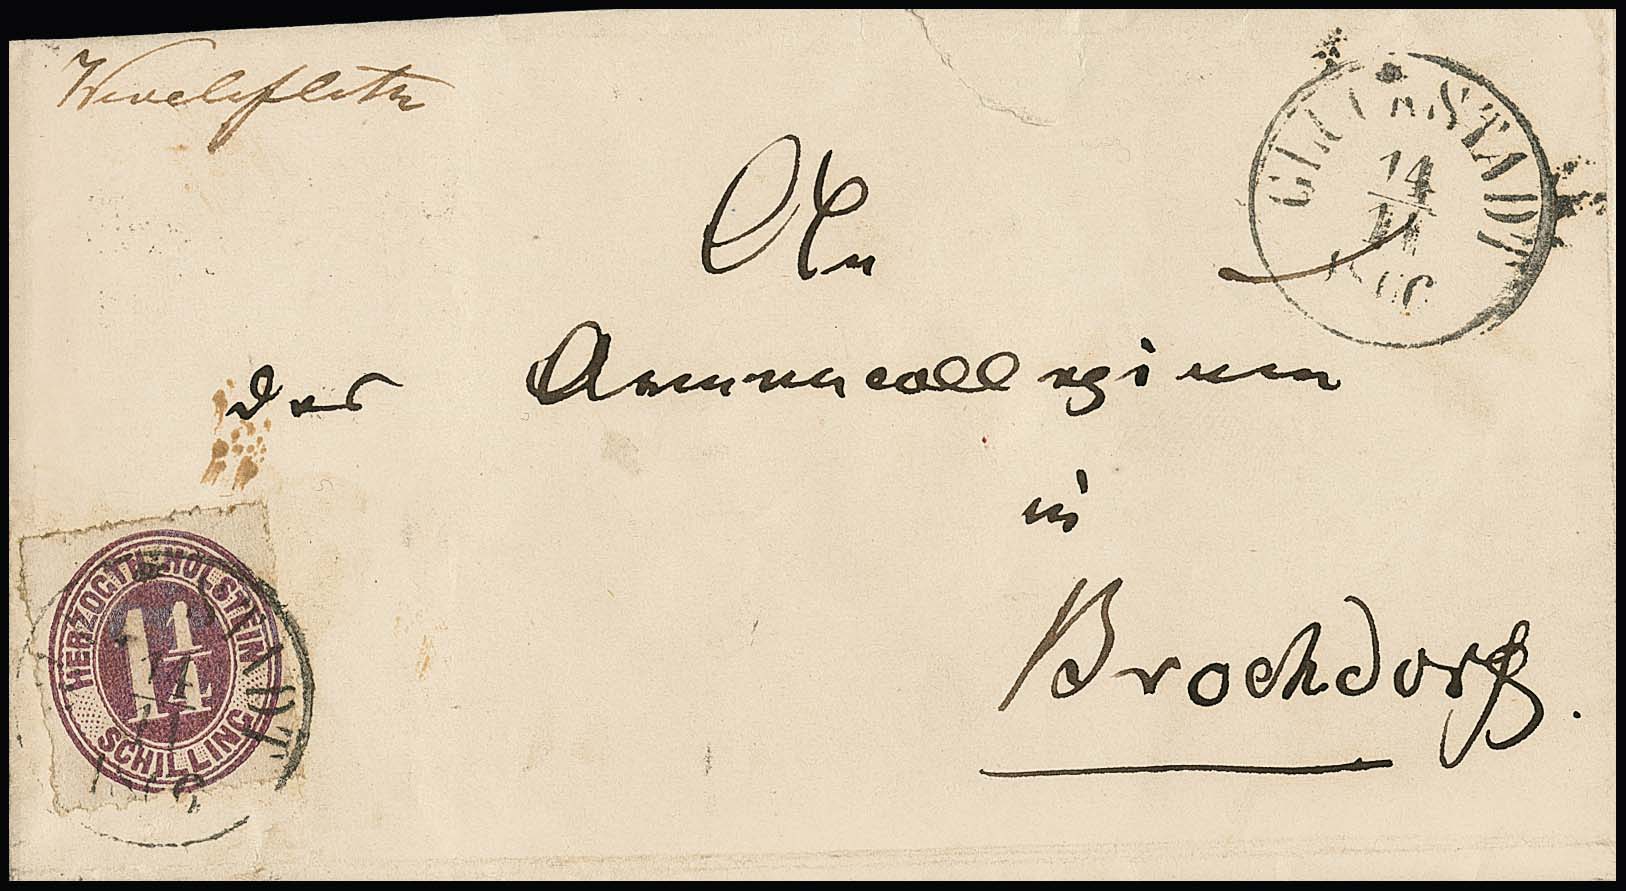 Wevelsfleth
GLÜCKSTADT
14
11
1866
An
das Armencollegium
in
Brochdorf.
HERZOGTH. HOLSTEIN
1 1/4
SCHILLING